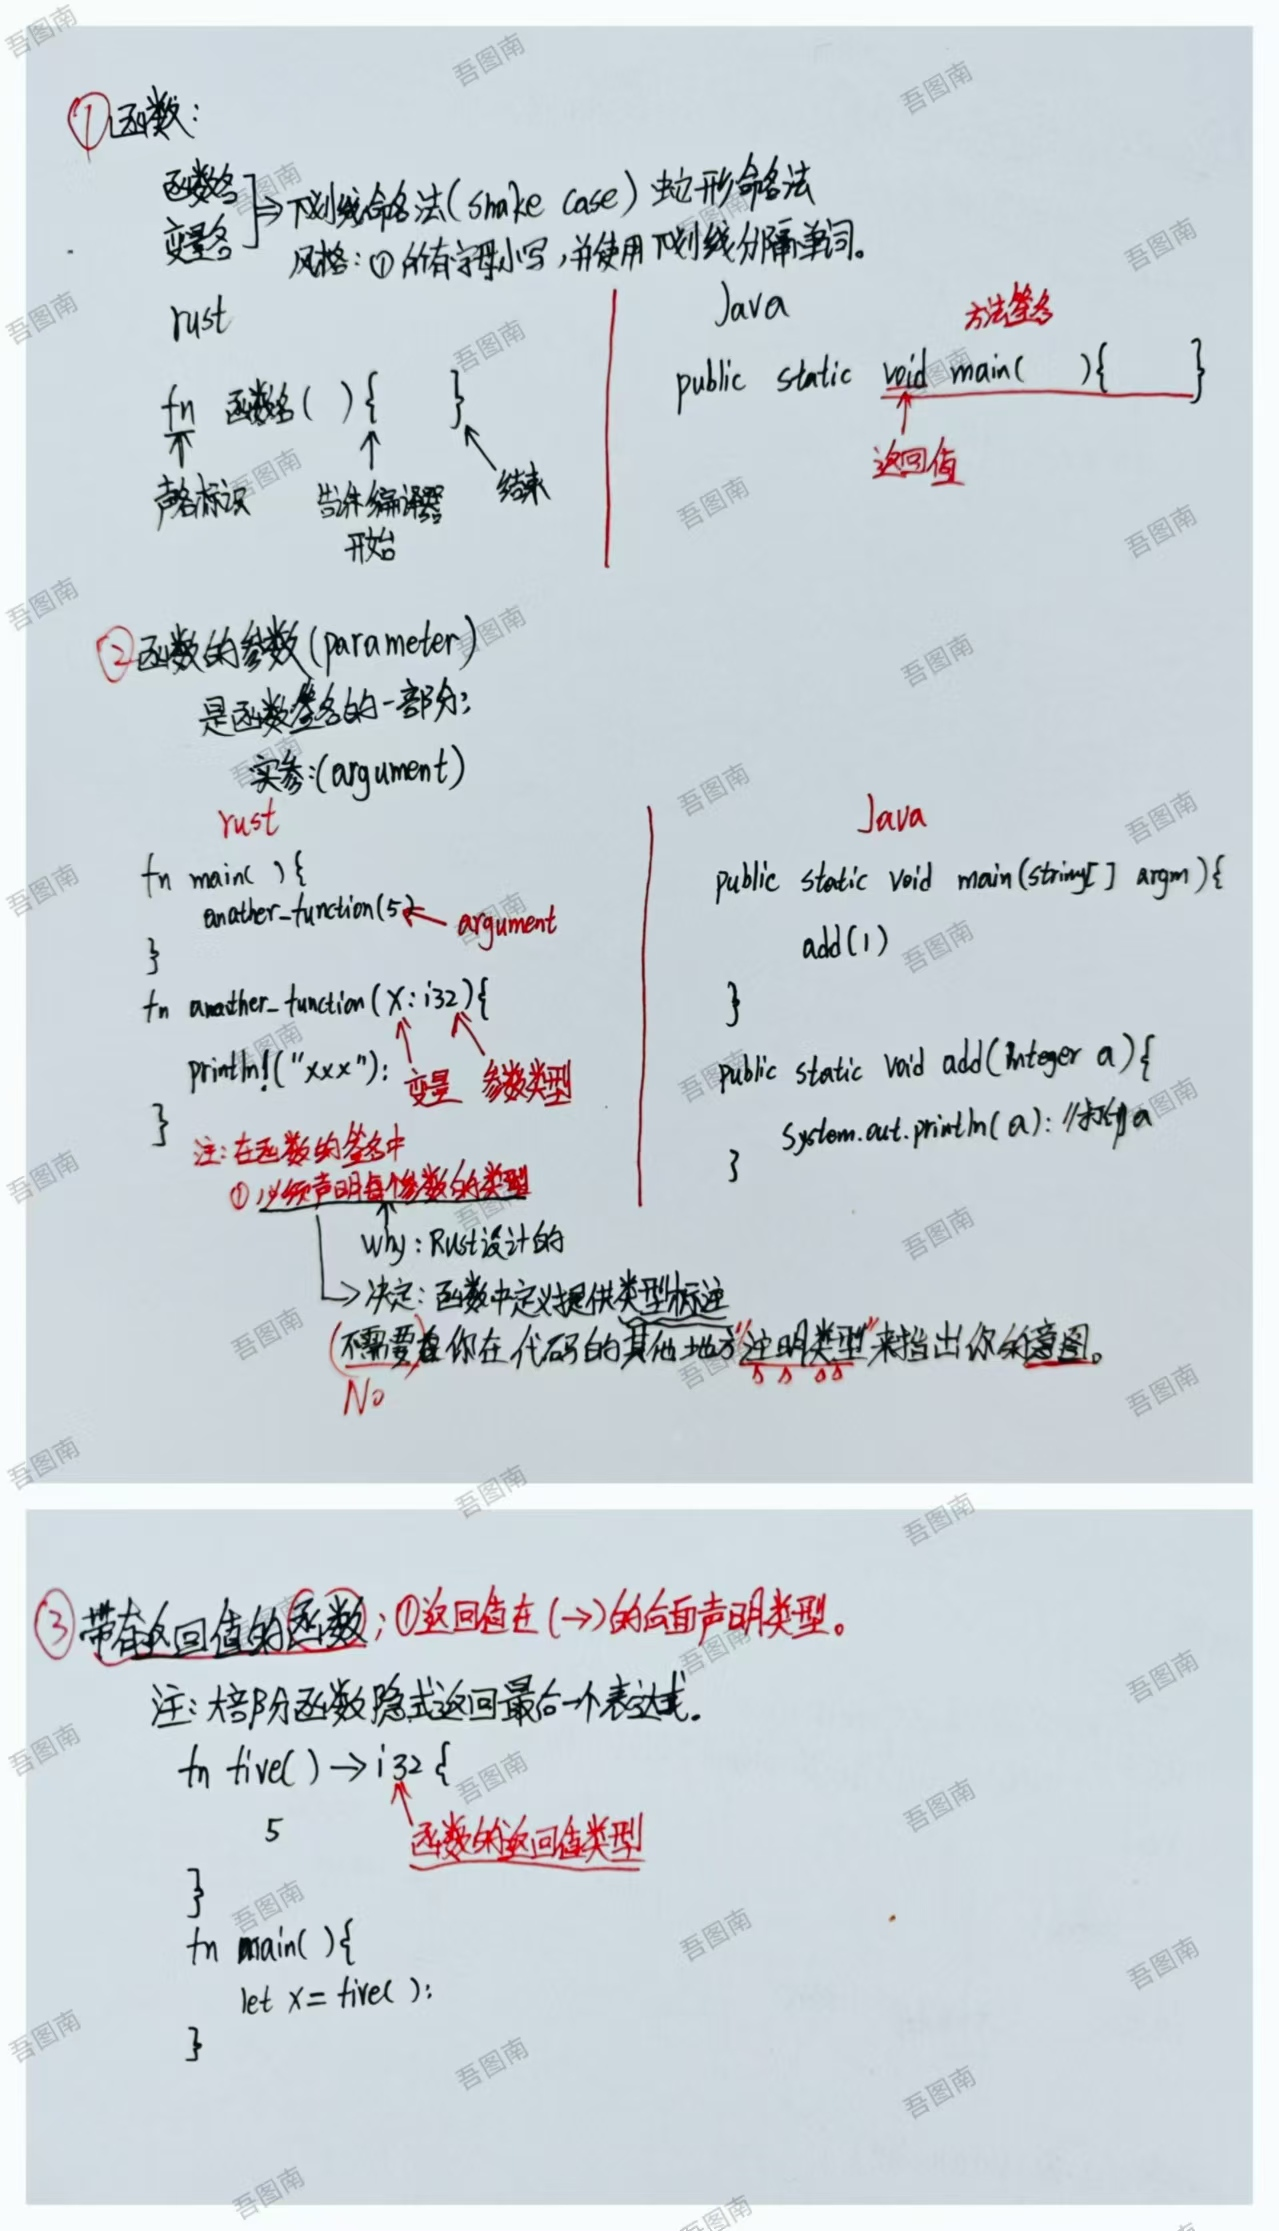 ①函数:
函数名
变量名
⇒下划线命名法(snake case) 蛇形命名法
风格:①所有字母小写,并使用下划线分隔单词。
rust
fn 函数名( ){ }
声名标识
告诉编译器
开始
结束
Java
方法签名
public static void main( ){ }
返回值
②函数的参数(parameter)
是函数签名的一部分;
实参:(argument)
rust
fn main( ){
anather_function(5)
argument
}
fn anather_function(x:i32){
println!("xxx");
变量 参数类型
}
注:在函数的签名中
①必须声明每个参数的类型
why:Rust设计的
→决定:函数中定义提供类型标注
(不需要)在你在代码的其他地方"注明类型"来指出你的意图。
No
Java
public static void main(string[] argm){
add(1)
}
public static void add(Integer a){
system.out.println(a); //打印a
}
③带有返回值的函数;①返回值在(→)的后面声明类型。
注:大部分函数隐式返回最后一个表达式.
fn five()→i32{
5
函数的返回值类型
}
fn main( ){
let x=five( );
}
吾图南